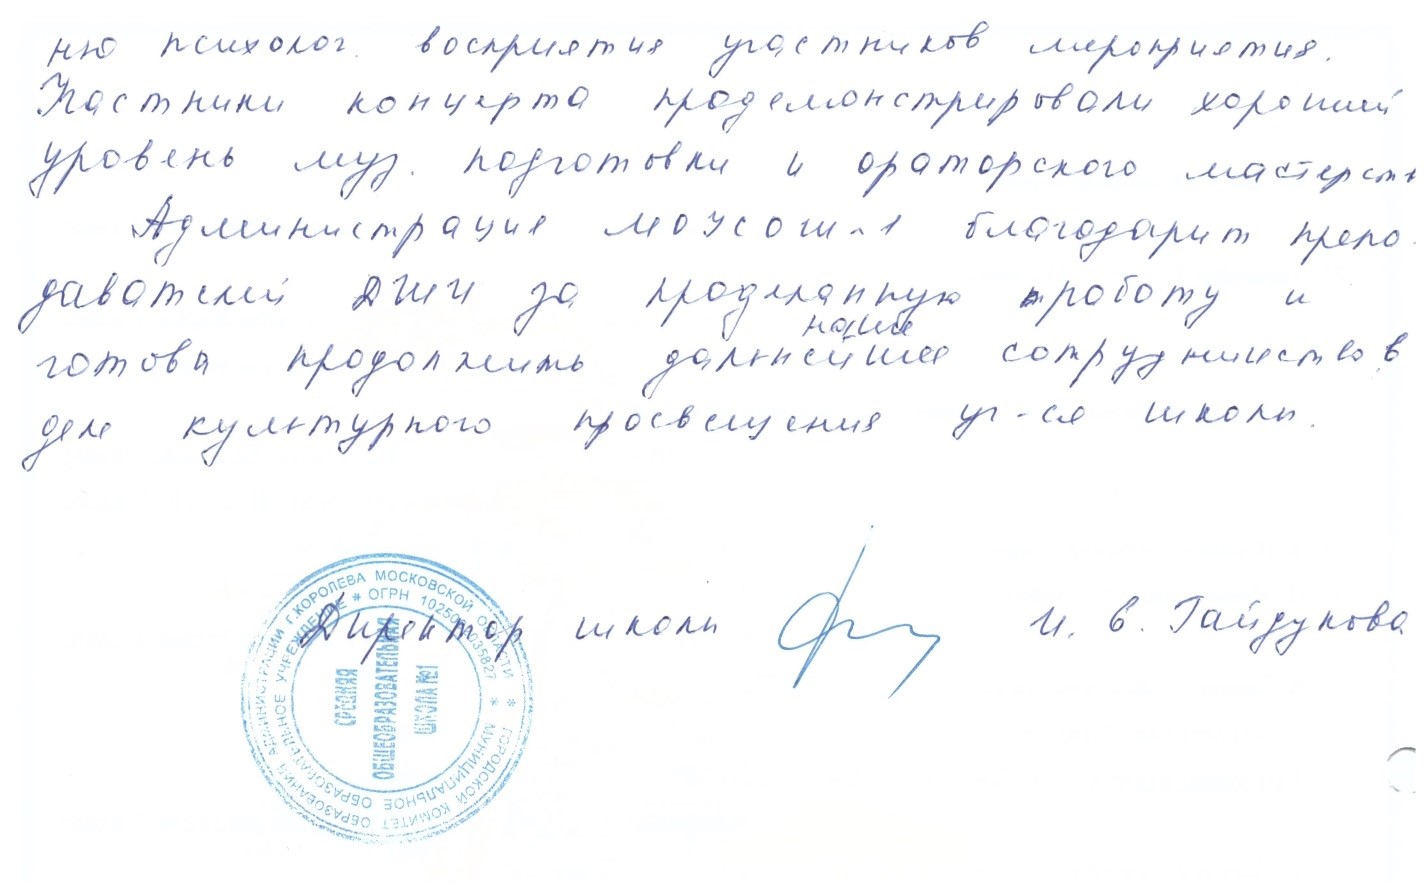 ню психолог. восприятия участников мероприятия.
Участники концерта продемонстрировали хороший
уровень муз. подготовки и ораторского мастерст
Администрация МОУСОШ-1 благодарит препо-
давателей ДШИ за проделанную работу и
наше
готова продолжить дальнейшее сотрудничество в
деле культурного просвещения уч-ся школы.
Директор школы И. В. Гайдукова
ГОРОДСКОЙ КОМИТЕТ ОБРАЗОВАНИЯ АДМИНИСТРАЦИИ Г.КОРОЛЕВА МОСКОВСКОЙ ОБЛАСТИ *
МУНИЦИПАЛЬНОЕ ОБРАЗОВАТЕЛЬНОЕ УЧРЕЖДЕНИЕ * ОГРН *
СРЕДНЯЯ
ОБЩЕОБРАЗОВАТЕЛЬНАЯ
ШКОЛА №1